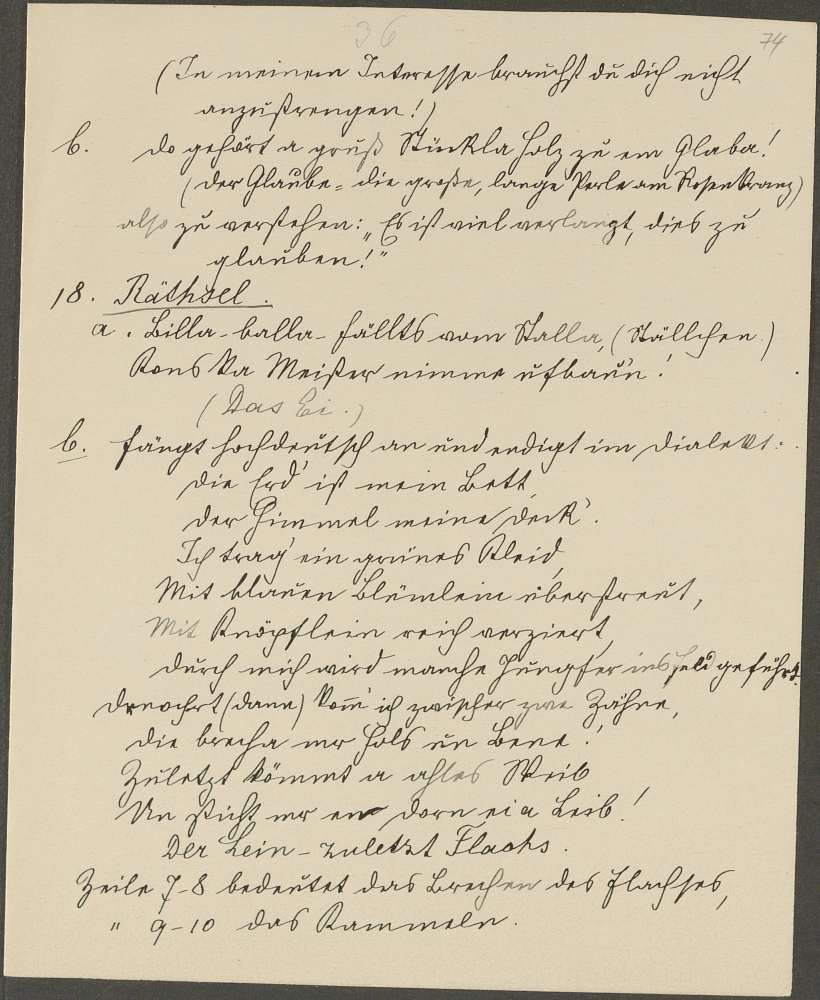 36
74
(In meinem Interesse brauchst du dich nicht
anzustrengen!)
b. do gehört a gruß Stückla Holz zu em Glaba!
(der Glaube = die große, lange Perle am Rosenkranz)
also zu verstehen: „Es ist viel verlangt, dies zu
glauben!"
18. Räthsel.
a. Billa-balla- fällts vom Stalla, (Ställchen.)
Kons ka Meister nimme ufbau'n!
(Das Ei.)
b. fängt hochdeutsch an und endigt im Dialekt:
Die Erd' ist mein Bett,
Der Himmel meine Deck'.
Ich trag' ein grünes Kleid,
Mit blauen Blümlein überstreut,
Mit Knöpflein reich verziert,
Durch mich wird manche Jungfer ins Feld geführt.
(dann) komm' ich zwischer zwe Zähne,
Die brecha mr Hols un Bene!
Zuletzt kömmt a ahles Weib
Un sticht mr en Dorn ei a Leib!
Der Lein - zuletzt Flachs.
Zeile 7-8 bedeutet das Brechen des Flachses,
" 9-10 das Kammeln.